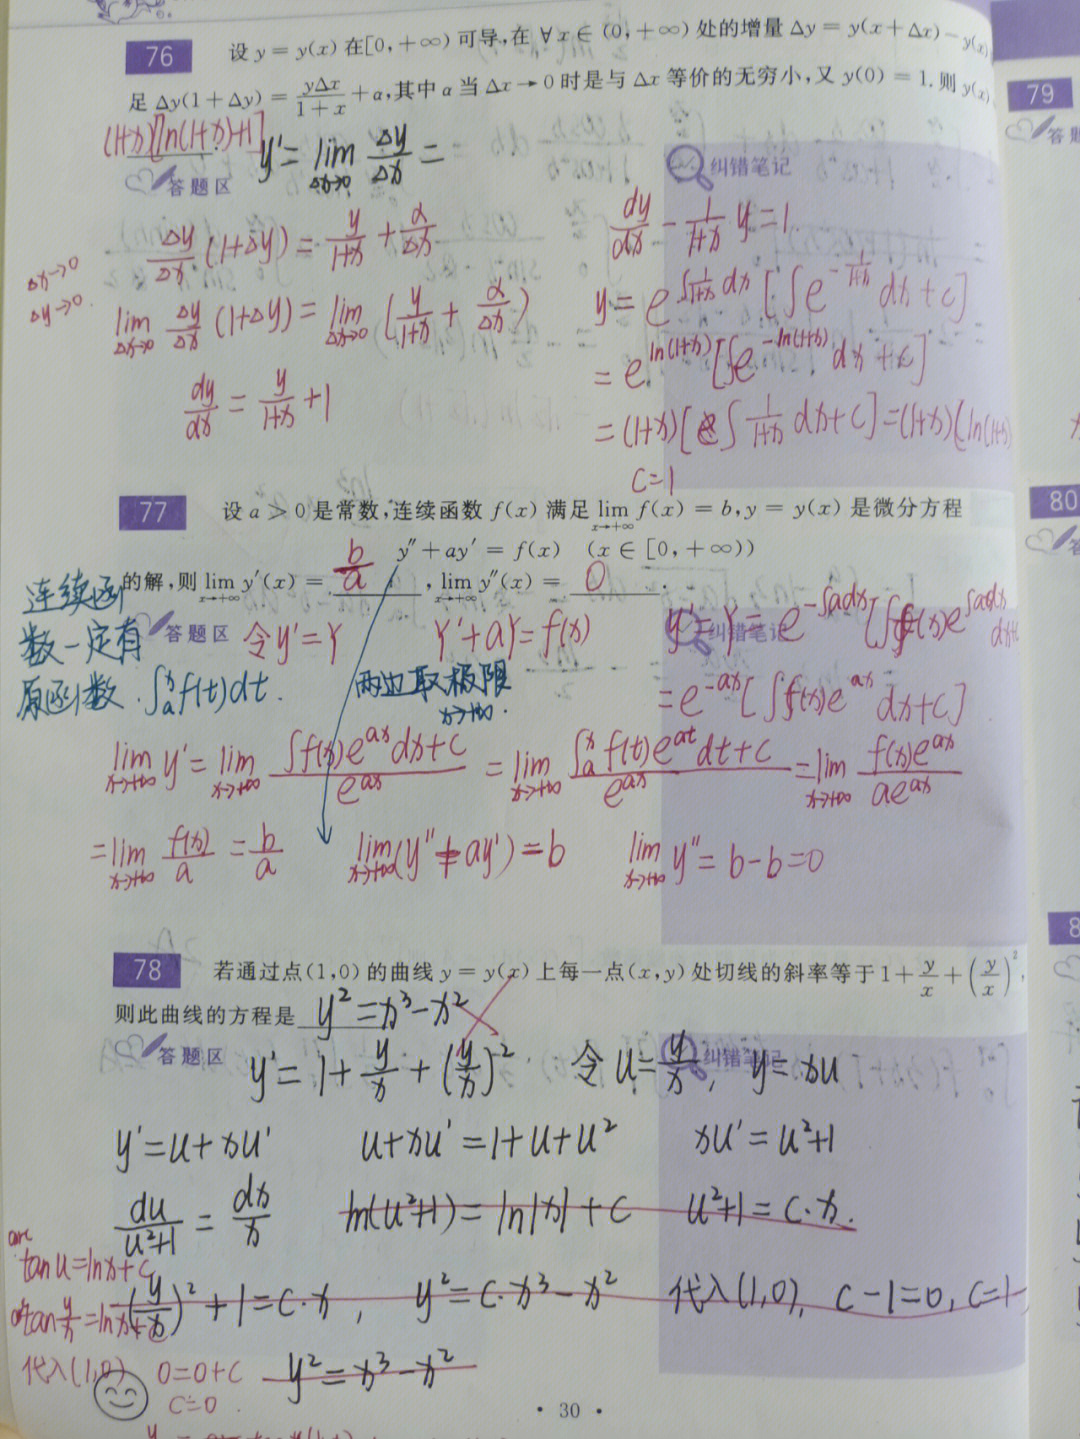 76 设 y = y(x) 在[0,+∞) 可导,在 ∀x∈(0,+∞) 处的增量 Δy = y(x+Δx) − y(x)
足 Δy(1+Δy) = yΔx/(1+x) + α,其中 α 当 Δx→0 时是与 Δx 等价的无穷小,又 y(0) = 1.则 y(x)
(1+x)[ln(1+x)+1] y' = lim Δx→0 Δy/Δx =
答题区 纠错笔记
Δy/Δx (1+Δy) = y/(1+x) + α/Δx
dy/dx − 1/(1+x) y = 1
Δx→0
Δy→0.
lim Δx→0 Δy/Δx (1+Δy) = lim Δx→0 (y/(1+x) + α/Δx)
y = e^∫1/(1+x) dx [∫e^−1/(1+x) dx + c]
= e^ln(1+x) [∫e^−ln(1+x) dx + c]
dy/dx = y/(1+x) + 1
= (1+x)[∫ 1/(1+x) dx + c] = (1+x)[ln(1+x)
c = 1
77 设 a > 0 是常数,连续函数 f(x) 满足 lim x→+∞ f(x) = b, y = y(x) 是微分方程
y″ + ay′ = f(x) (x∈[0,+∞))
的解,则 lim x→+∞ y′(x) = b/a , lim x→+∞ y″(x) = 0 .
连续函
数一定有
原函数. ∫ₐˣ f(t)dt.
答题区 纠错笔记
令 y' = Y Y' + aY = f(x) y' = Y = e^−∫adx [∫f(x)e^∫adx dx+
两边取极限 x→+∞.
= e^−ax [∫f(x)e^ax dx + c]
lim x→+∞ y' = lim x→+∞ (∫f(x)e^ax dx + c)/e^ax = lim x→+∞ (∫ₐˣ f(t)e^at dt + c)/e^ax = lim x→+∞ f(x)e^ax/(ae^ax)
= lim x→+∞ f(x)/a = b/a lim x→+∞ (y″ + ay') = b lim x→+∞ y″ = b − b = 0
78 若通过点(1,0) 的曲线 y = y(x) 上每一点(x,y) 处切线的斜率等于 1 + y/x + (y/x)²,
则此曲线的方程是 y² = x³ − x²
答题区 纠错笔记
y' = 1 + y/x + (y/x)² 令 u = y/x, y = xu
y' = u + xu' u + xu' = 1 + u + u² xu' = u² + 1
du/(u²+1) = dx/x ln(u²+1) = ln|x| + c u²+1 = c·x.
arc tan u = lnx + c
(y/x)² + 1 = c·x, y² = c·x³ − x² 代入(1,0), c − 1 = 0, c = 1
arctan y/x = lnx + c
代入(1,0) 0 = 0 + c
c = 0
y² = x³ − x²
· 30 ·
79
80